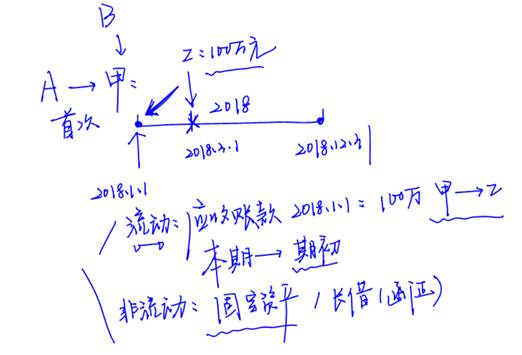 B
Z=100万元
A → 甲:
首次
2018
2018.3.1
2018.12.31
2018.1.1
流动: 应收账款 2018.1.1 = 100万 甲→Z
本期 → 期初
非流动: 固定资产 / 长借(函证)